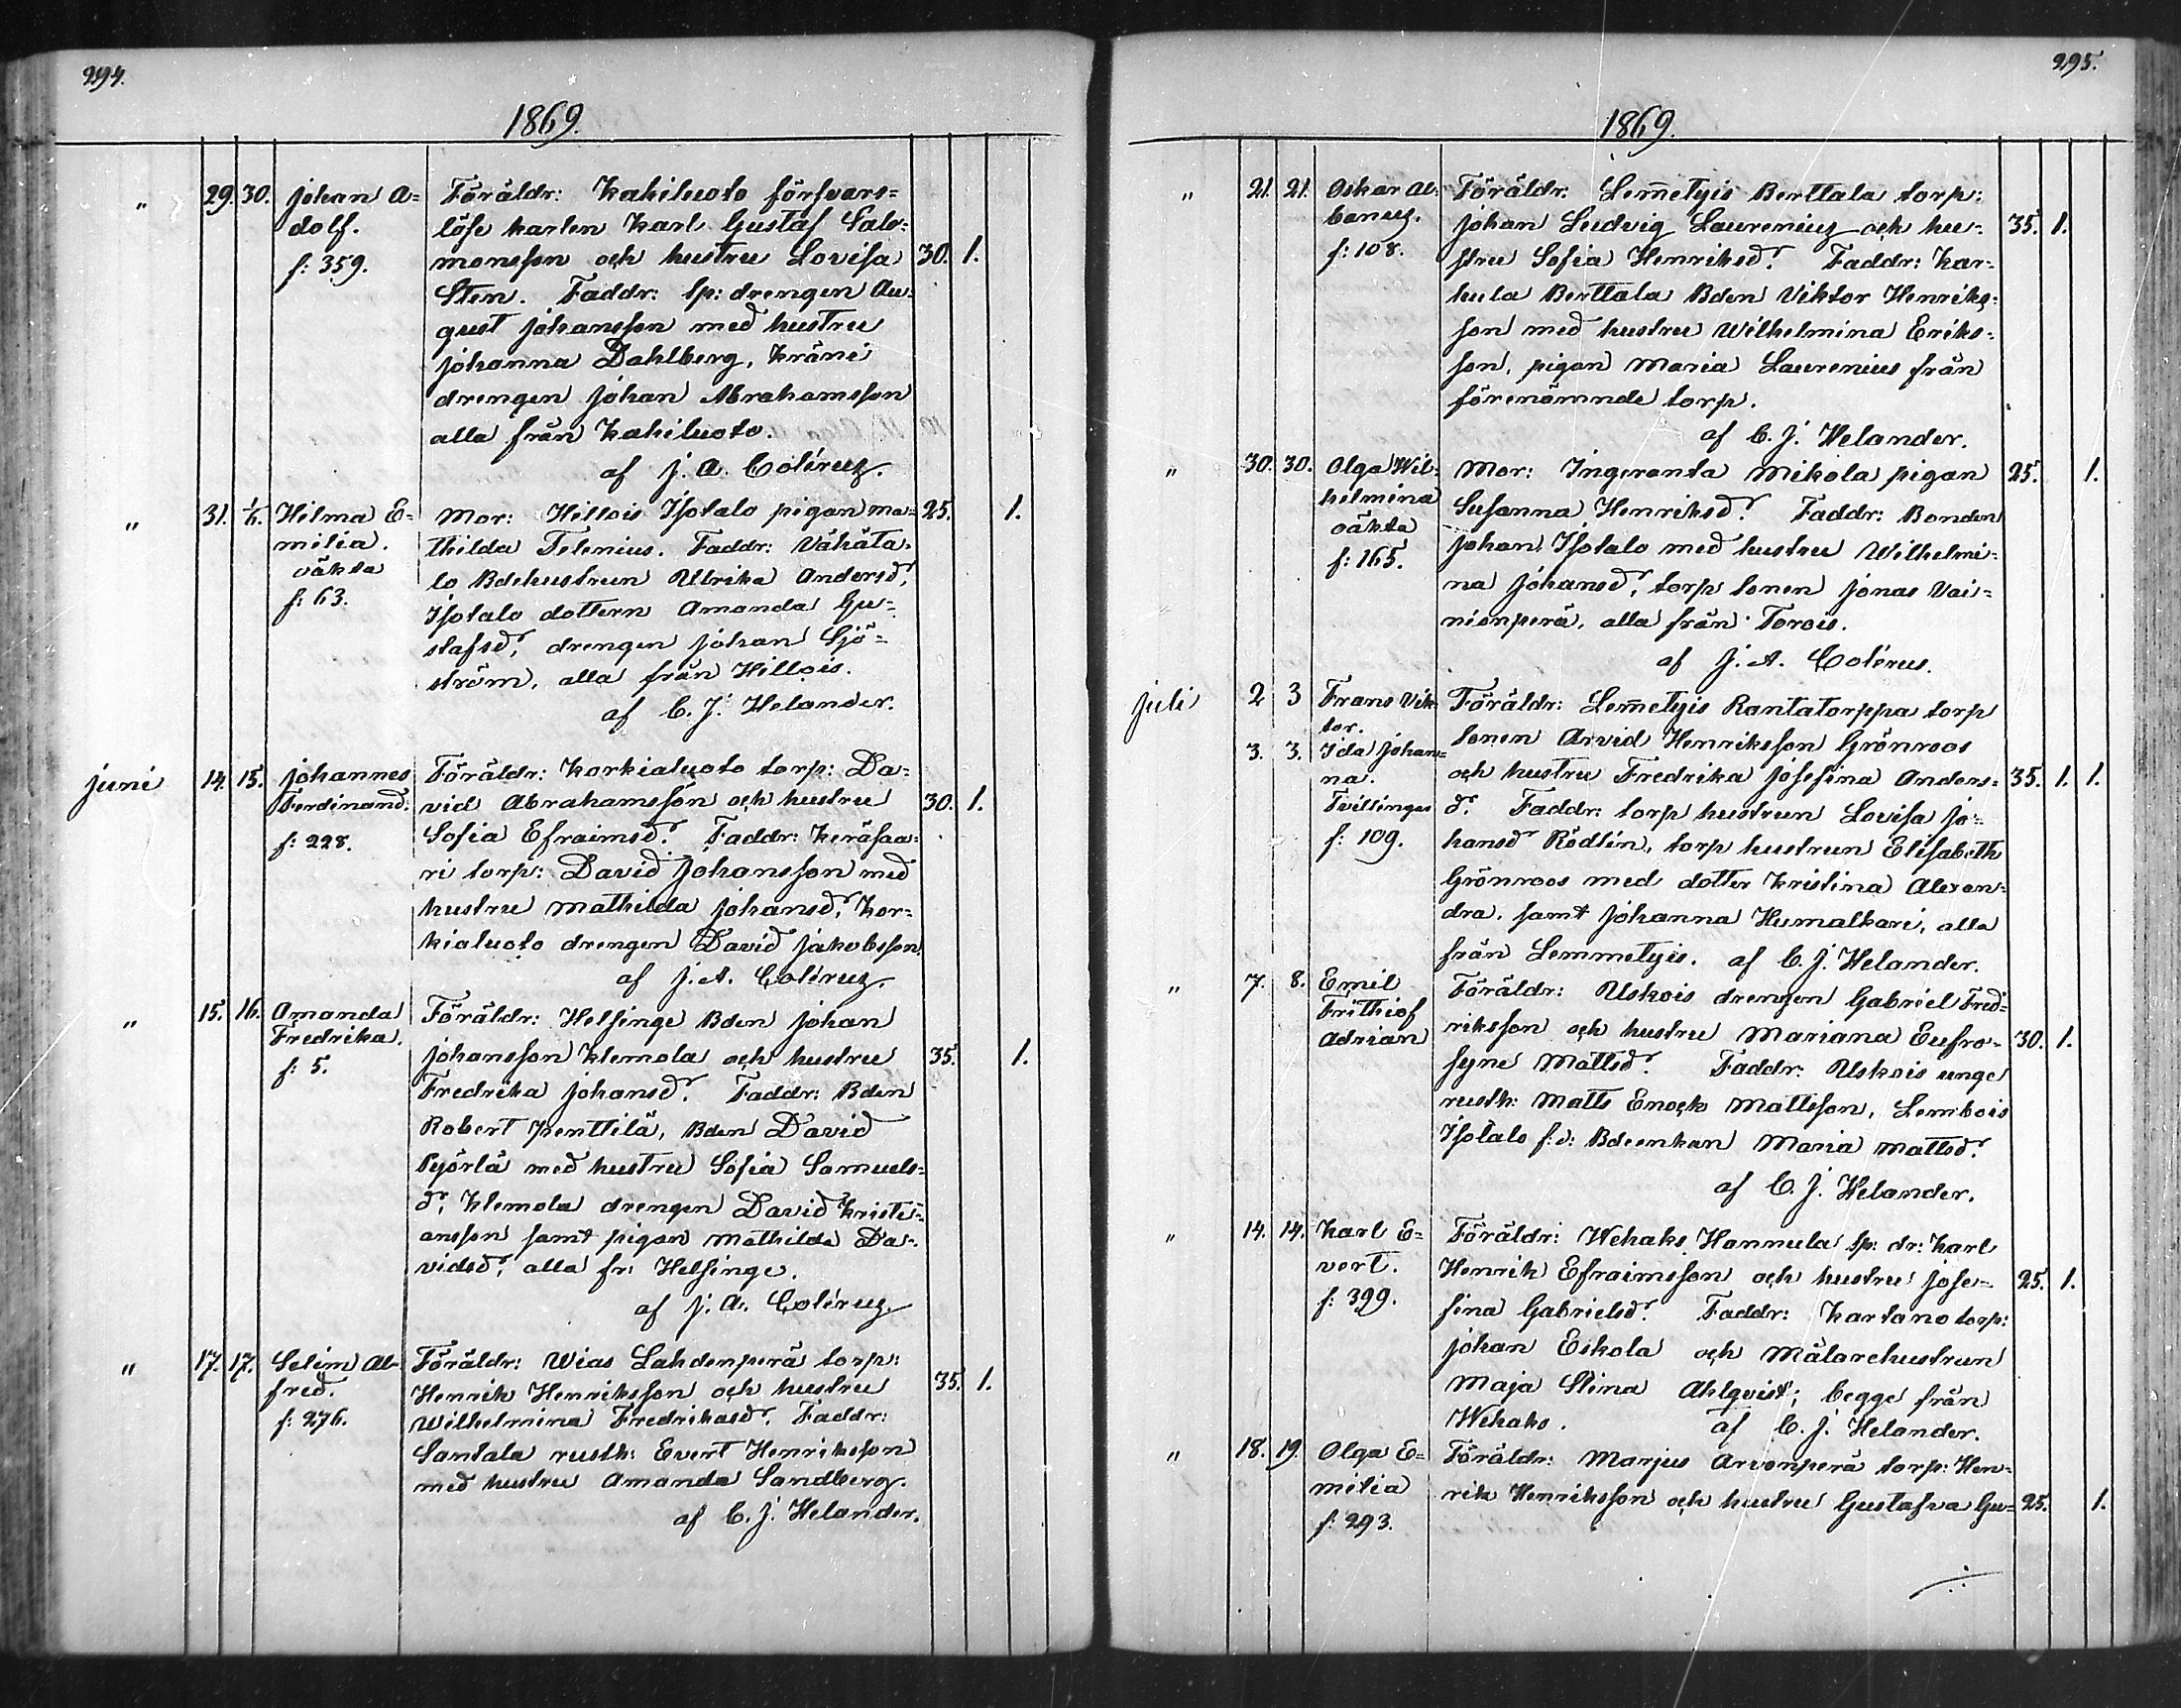 294.
1869.
" 29. 30. Johan A= Föräldr: Kahiluoto försvars=
dolf. löse karlen Karl Gustaf Salo=
f: 359. monsson och hustru Lovisa 30. 1.
Sten. Faddr: sp: drengen Au=
gust Johansson med hustru
Johanna Dahlberg, Kräni
drengen Johan Abrahamsson
alla från Kahiluoto.
af J. A. Colérus.
" 31. 1/6. Hilma E= Mor: Hillois Isotalo pigan Ma= 25. 1.
milia. thilda Telenius. Faddr: Vähäta=
oäkta lo Bdehustrun Ulrika Andersdr,
f: 63. Isotalo dottern Amanda Gu=
stafsdr, drengen Johan Sjö=
ström, alla från Hillois.
af C. J. Helander.
Juni 14. 15. Johannes Föräldr: Korkialuoto torp: Da=
Ferdinand. vid Abrahamsson och hustru 30. 1.
f: 228. Sofia Efraimsdr. Faddr: Keräsaa=
ri torp: David Johansson med
hustru Mathilda Johansdr, Kor=
kialuoto drengen David Jakobsson.
af J. A. Colérus.
" 15. 16. Amanda Föräldr: Helsinge Bden Johan
Fredrika. Johansson Klemola och hustru 35. 1.
f: 5. Fredrika Johansdr. Faddr: Bden
Robert Penttilä, Bden David
Pyörlä med hustru Sofia Samuels=
dr, Klemola drengen David Kristi=
ansson samt pigan Mathilda Da=
vidsdr, alla fr: Helsinge.
af J. A. Colérus.
" 17. 17. Selim Al= Föräldr: Wias Lahdenperä torp:
fred. Henrik Henriksson och hustru 35. 1.
f: 276. Wilhelmina Fredriksdr. Faddr:
Santala rusth: Evert Henriksson
med hustru Amanda Sandberg.
af C. J. Helander.
295.
1869.
" 21. 21. Oskar Al= Föräldr: Lem̄etyis Berttala torp:
banus. Johan Ludvig Laurenius och hu= 35. 1.
f: 108. stru Sofia Henriksdr. Faddr: Kar=
hula Berttala Bden Viktor Henriks=
son med hustru Wilhelmina Eriks=
son, pigan Maria Laurenius från
förenämnde torp.
af C. J. Helander.
" 30. 30. Olga Wil= Mor: Ingeranta Mikola pigan 25. 1.
helmina Susanna Henriksdr. Faddr: Bonden
oäkta Johan Isotalo med hustru Wilhelmi=
f: 165. na Johansdr, torp sonen Jonas Vai=
nionperä, alla från Torois.
af J. A. Colérus.
Juli 2 3 Frans Vik= Föräldr: Lem̄etyis Rantatorppa torp
tor. sonen Arvid Henriksson Grönroos
3. 3. Ida Johan= och hustru Fredrika Josefina Anders= 35. 1. 1.
na.
Tvillingar dr. Faddr: torp hustrun Lovisa Jo=
f: 109. hansdr Rödlin, torp hustrun Elisabeth
Grönroos med dotter Kristina Alexan=
dra, samt Johanna Humalkari, alla
från Lemmetyis. af C. J. Helander.
" 7. 8. Emil Föräldr: Uskois drengen Gabriel Fred=
Frithiof riksson och hustru Mariana Eufro= 30. 1.
Adrian syne Mattsdr. Faddr: Uskois unge
rusth: Matts Enock Mattsson, Lembois
Isotalo f: d: Bdeenkan Maria Mattsdr.
af C. J. Helander.
" 14. 14. Karl E= Föräldr: Wehaks Hannula sp: dr: Karl
vert. Henrik Efraimsson och hustru Jose= 25. 1.
f: 399. fina Gabrielsdr. Faddr: Kartano torp:
Johan Eskola och Målarehustrun
Maja Stina Ahlqvist; begge från
Wehaks. af C. J. Helander.
" 18. 19. Olga E= Föräldr: Marjus Arvonperä torp: Hen=
milia rik Henriksson och hustru Gustafva Gu= 25. 1.
f: 293.